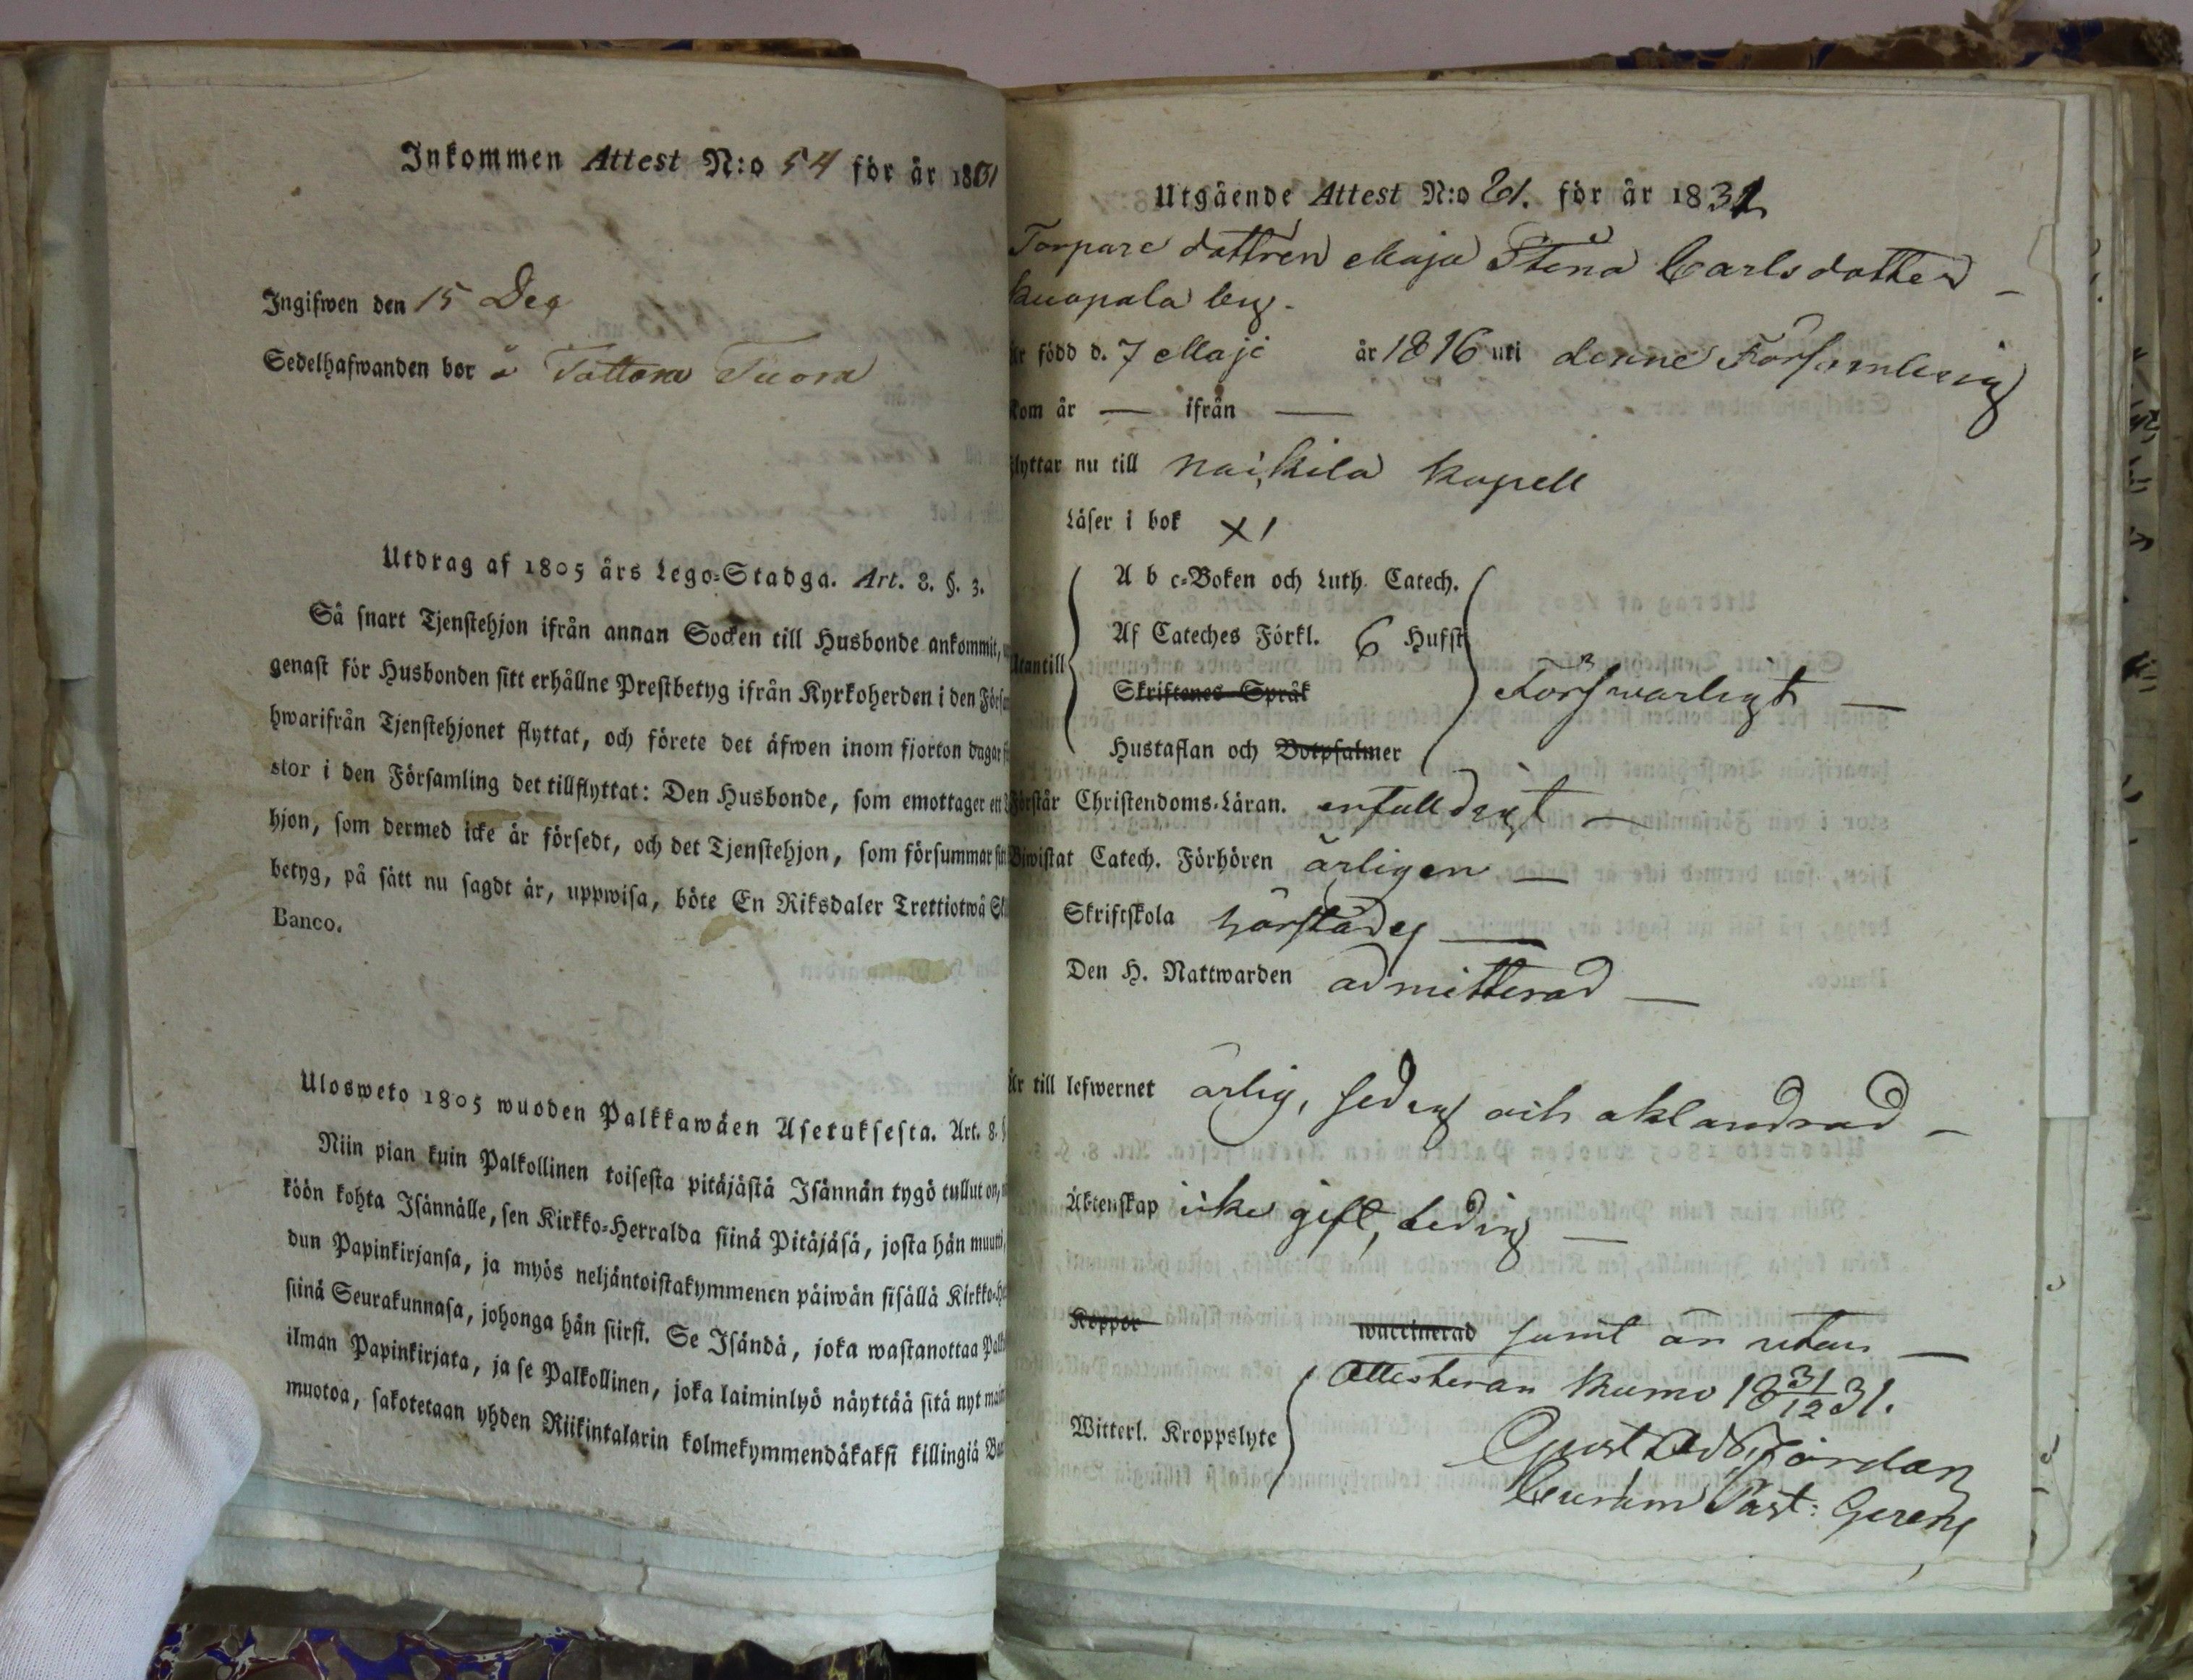 Inkommen Attest N:o 54 för år 1831
Ingifwen den 15 Dec
Sedelhafwanden bor å Tattara Tuora
Utdrag af 1805 års Lego-Stadga. Art. 8. §. 3.
Så snart Tjenstehjon ifrån annan Socken till Husbonde ankommit,
genast för Husbonden sitt erhållne Prestbetyg ifrån Kyrkoherden i den Försa
hwarifrån Tjenstehjonet flyttat, och förete det äfwen inom fjorton dagar
stor i den Församling det tillflyttat: Den Husbonde, som emottager ett
hjon, som dermed icke är försedt, och det Tjenstehjon, som försummar
betyg, på sätt nu sagdt är, uppwisa, böte En Riksdaler Trettiotwå
Banco.
Ulosweto 1805 wuoden Palkkawäen Asetuksesta. Art. 8.
Niin pian kuin Palkollinen toisesta pitäjästä Isännän tygö tullut on,
köön kohta Isännälle, sen Kirkko-Herralda siinä Pitäjäsä, josta hän muutti,
dun Papinkirjansa, ja myös neljäntoistakymmenen päiwän sisällä Kirkko-
siinä Seurakunnasa, johonga hän siirst. Se Isändä, joka wastanottaa
ilman Papinkirjata, ja se Palkollinen, joka laiminlyö näyttää sitä nyt
muotoa, sakotetaan yhden Riikintalarin kolmekymmendäkaksi killingiä
Utgående Attest N:o 21. för år 1831
Torpare dottren Maja Stina Carlsdotter
Kuopala by.
är född d. 7 Maji år 1816 uti denne Församling
kom år — ifrån —
flyttar nu till Naikila Kapell
Läser i bok X /
A b c-Boken och Luth. Catech.
Af Cateches Förkl. 6 Hufst
Utantill
Skriftenes Språk
Förswarligt —
Hustaflan och Botpsalmer
Förstår Christendoms-Läran. enfalldigt —
Biwistat Catech. Förhören årligen —
Skriftskola härstädes —
Den H. Nattwarden admitterad —
Är till lefwernet ärlig, sedig och oklandrad —
Äktenskap icke gift, ledig —
Koppor waccinerad samt är utan —
Attesteras Kumo 18 31/12 31.
Witterl. Kroppslyte
Gust Ad
Curam Past: Gerens